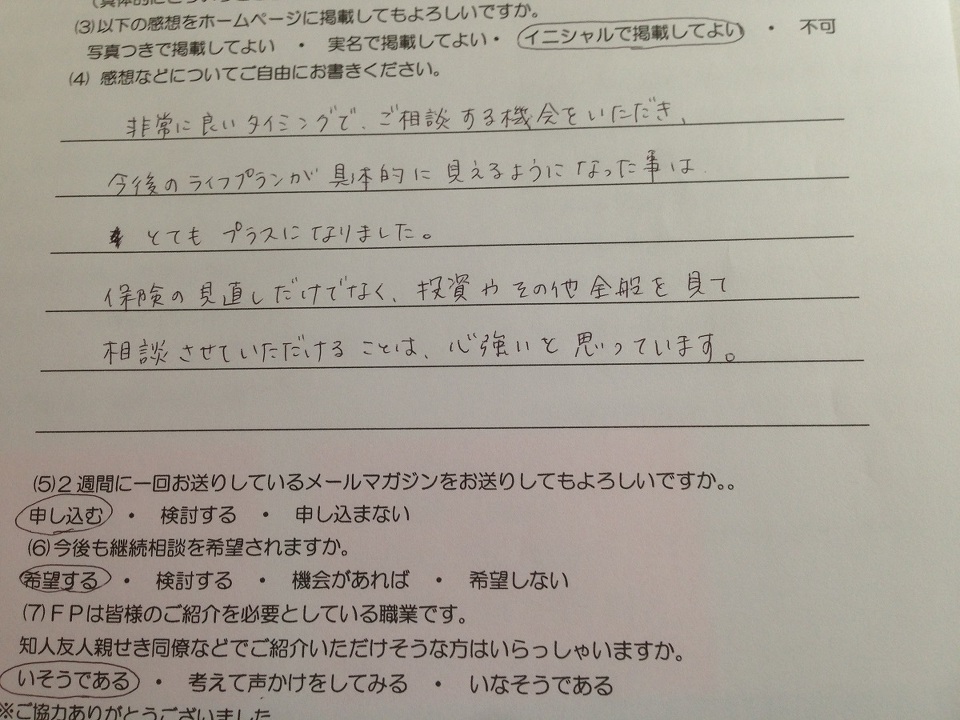 (3)以下の感想をホームページに掲載してもよろしいですか。
写真つきで掲載してよい ・ 実名で掲載してよい・ イニシャルで掲載してよい ・ 不可
(4) 感想などについてご自由にお書きください。
非常に良いタイミングで、ご相談する機会をいただき、
今後のライフプランが具体的に見えるようになった事は
とてもプラスになりました。
保険の見直しだけでなく、投資やその他全般を見て
相談させていただけることは、心強いと思っています。
(5)2週間に一回お送りしているメールマガジンをお送りしてもよろしいですか。。
申し込む ・ 検討する ・ 申し込まない
(6)今後も継続相談を希望されますか。
希望する ・ 検討する ・ 機会があれば ・ 希望しない
(7)FPは皆様のご紹介を必要としている職業です。
知人友人親せき同僚などでご紹介いただけそうな方はいらっしゃいますか。
いそうである ・ 考えて声かけをしてみる ・ いなそうである
※ご協力ありがとうございました